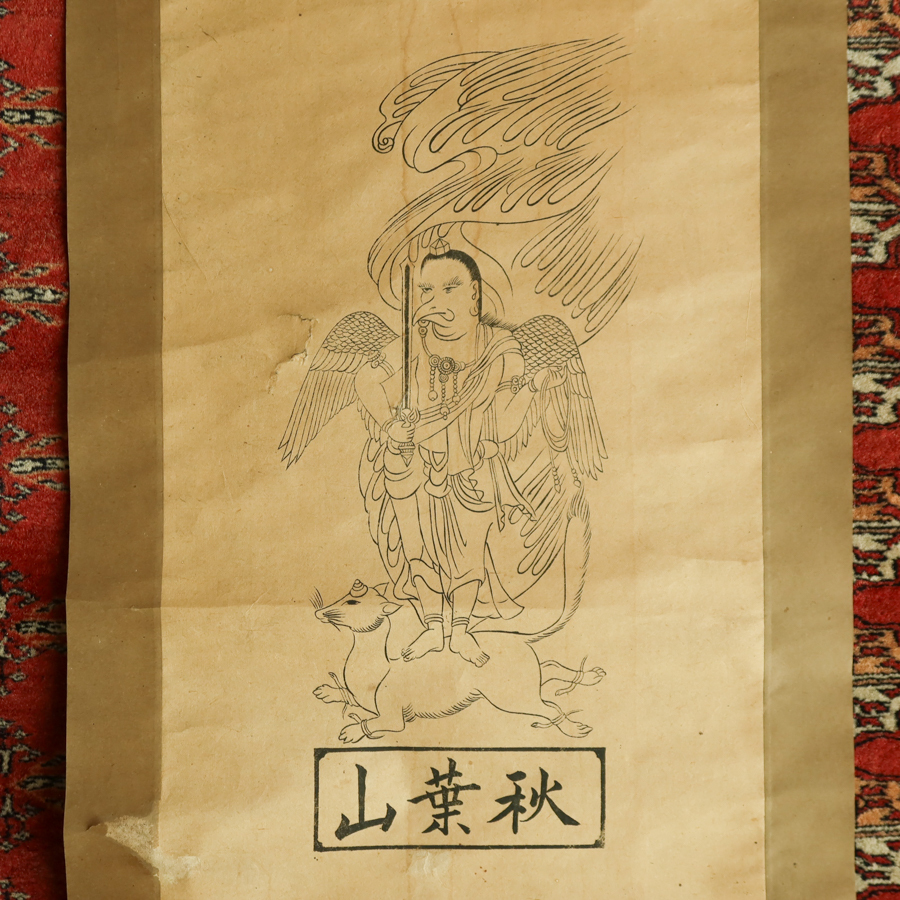 秋葉山